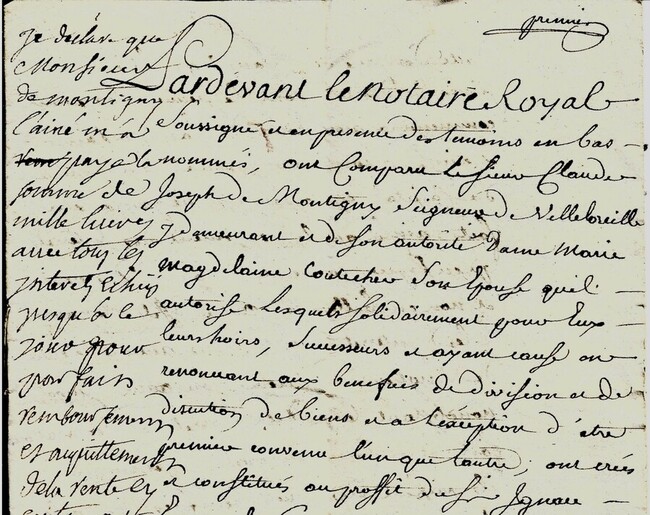 premier
Pardevant le Notaire Royal
Soussigné et en presence des temoins en bas
nommés, ont Comparu le sieur Claude
Joseph de Montigny Seigneur de Velleloreille
y demeurant et de son autorité Dame Marie
Magdelaine son Epouse qu'il
autorise Lesquels solidairement pour Eux
leurs hoirs, successeurs et ayant cause on
renoncant aux benefices de division et de
discution de biens et a l'exception d'être
premiere convenu l'un que l'autre, ont créés
et constitués au proffit du Sr Ignace
je déclare que
Monsieur
de montigny
l'ainé m'a
payé la
somme de
mille livres
avec tous les
interets echus
jusqu'à ce
jour pour
parfait
rembourcement
et acquittement
de la rente